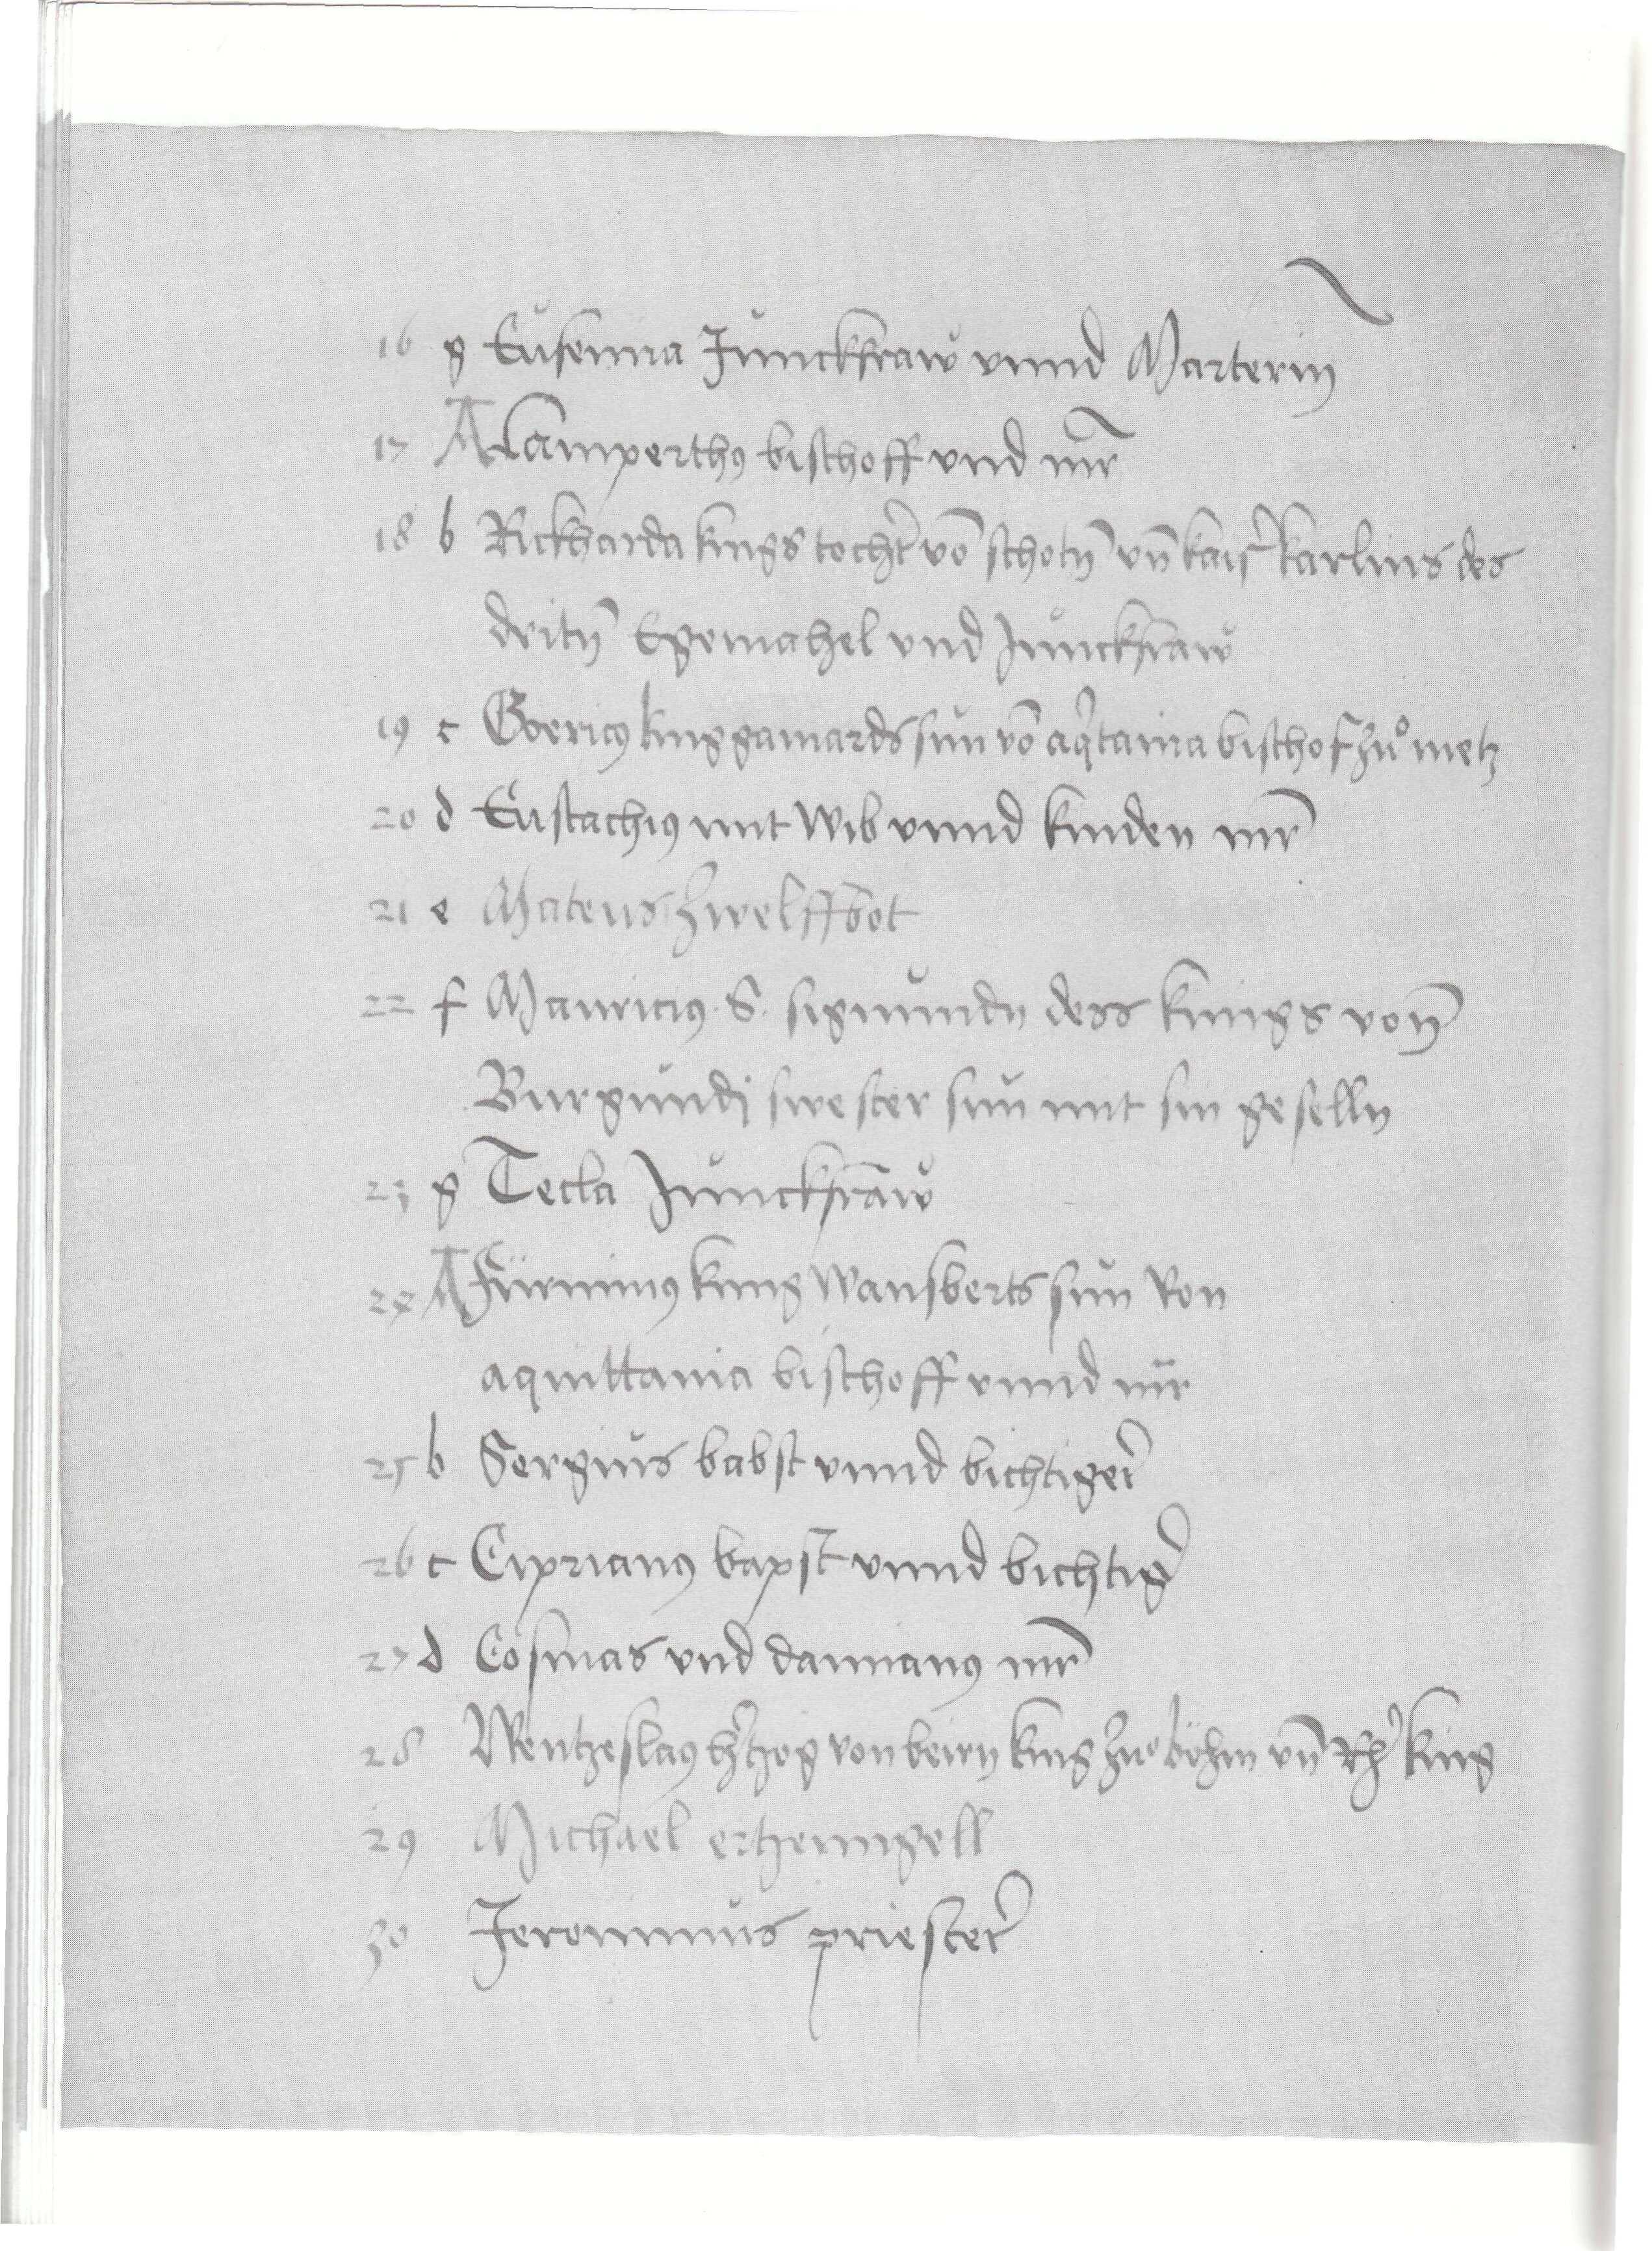 16 g Eufemia Junckfraw vnnd Marterin
17 A Lamperthꝰ bischoff vnd mr̄
18 b Rickharda kings tocht̉ vō schotn̄ vn̄ kais̉ karlins des
dritn̄ Egemahel vnd Junckfraw
19 c Goericꝰ king gamards sun vō aq̉tania bischof zuͦ metz
20 d Eustachiꝰ mit wib vnnd kinden mr̄
21 e Mateus zwelffbot
22 f Mauriciꝰ S. sigmundn dess kings vonn̄
Burgundj swester sun mit sin geselln
23 g Tecla Junckfraw
24 A Firminꝰ king Wansberts sun von
aquittania bischoff vnnd mr̄
25 b Sergius babst vnnd bichtiger̉
26 c Ciprianꝰ bapst vnnd bichtig̉
27 d Cosmas vnd damianꝰ mr̄
28 Wentzeslaꝰ h̉tzog von beirn king zuͦ böhm vn̄ Rh̉ king
29 Michael ertzenngell
30 Jeronimus priester̉